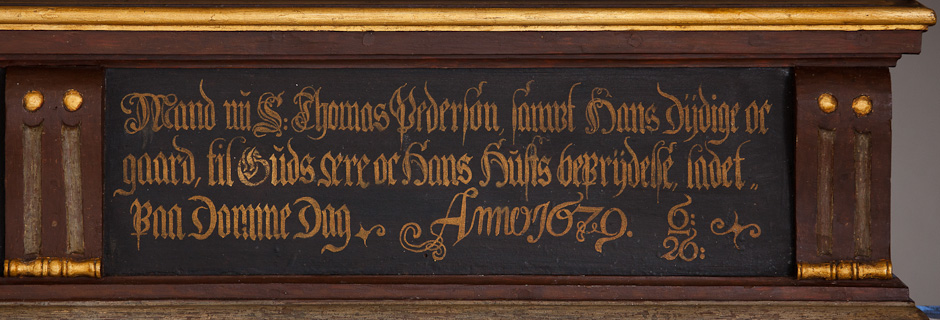 Mand nu S: Thomas Pedersøn, sampt Hans Dÿdige oc
gaard, til Guds ære oc Hans Huses beprÿdelse, ladet„
paa Dorune Day Anno 1679. 6:
26: